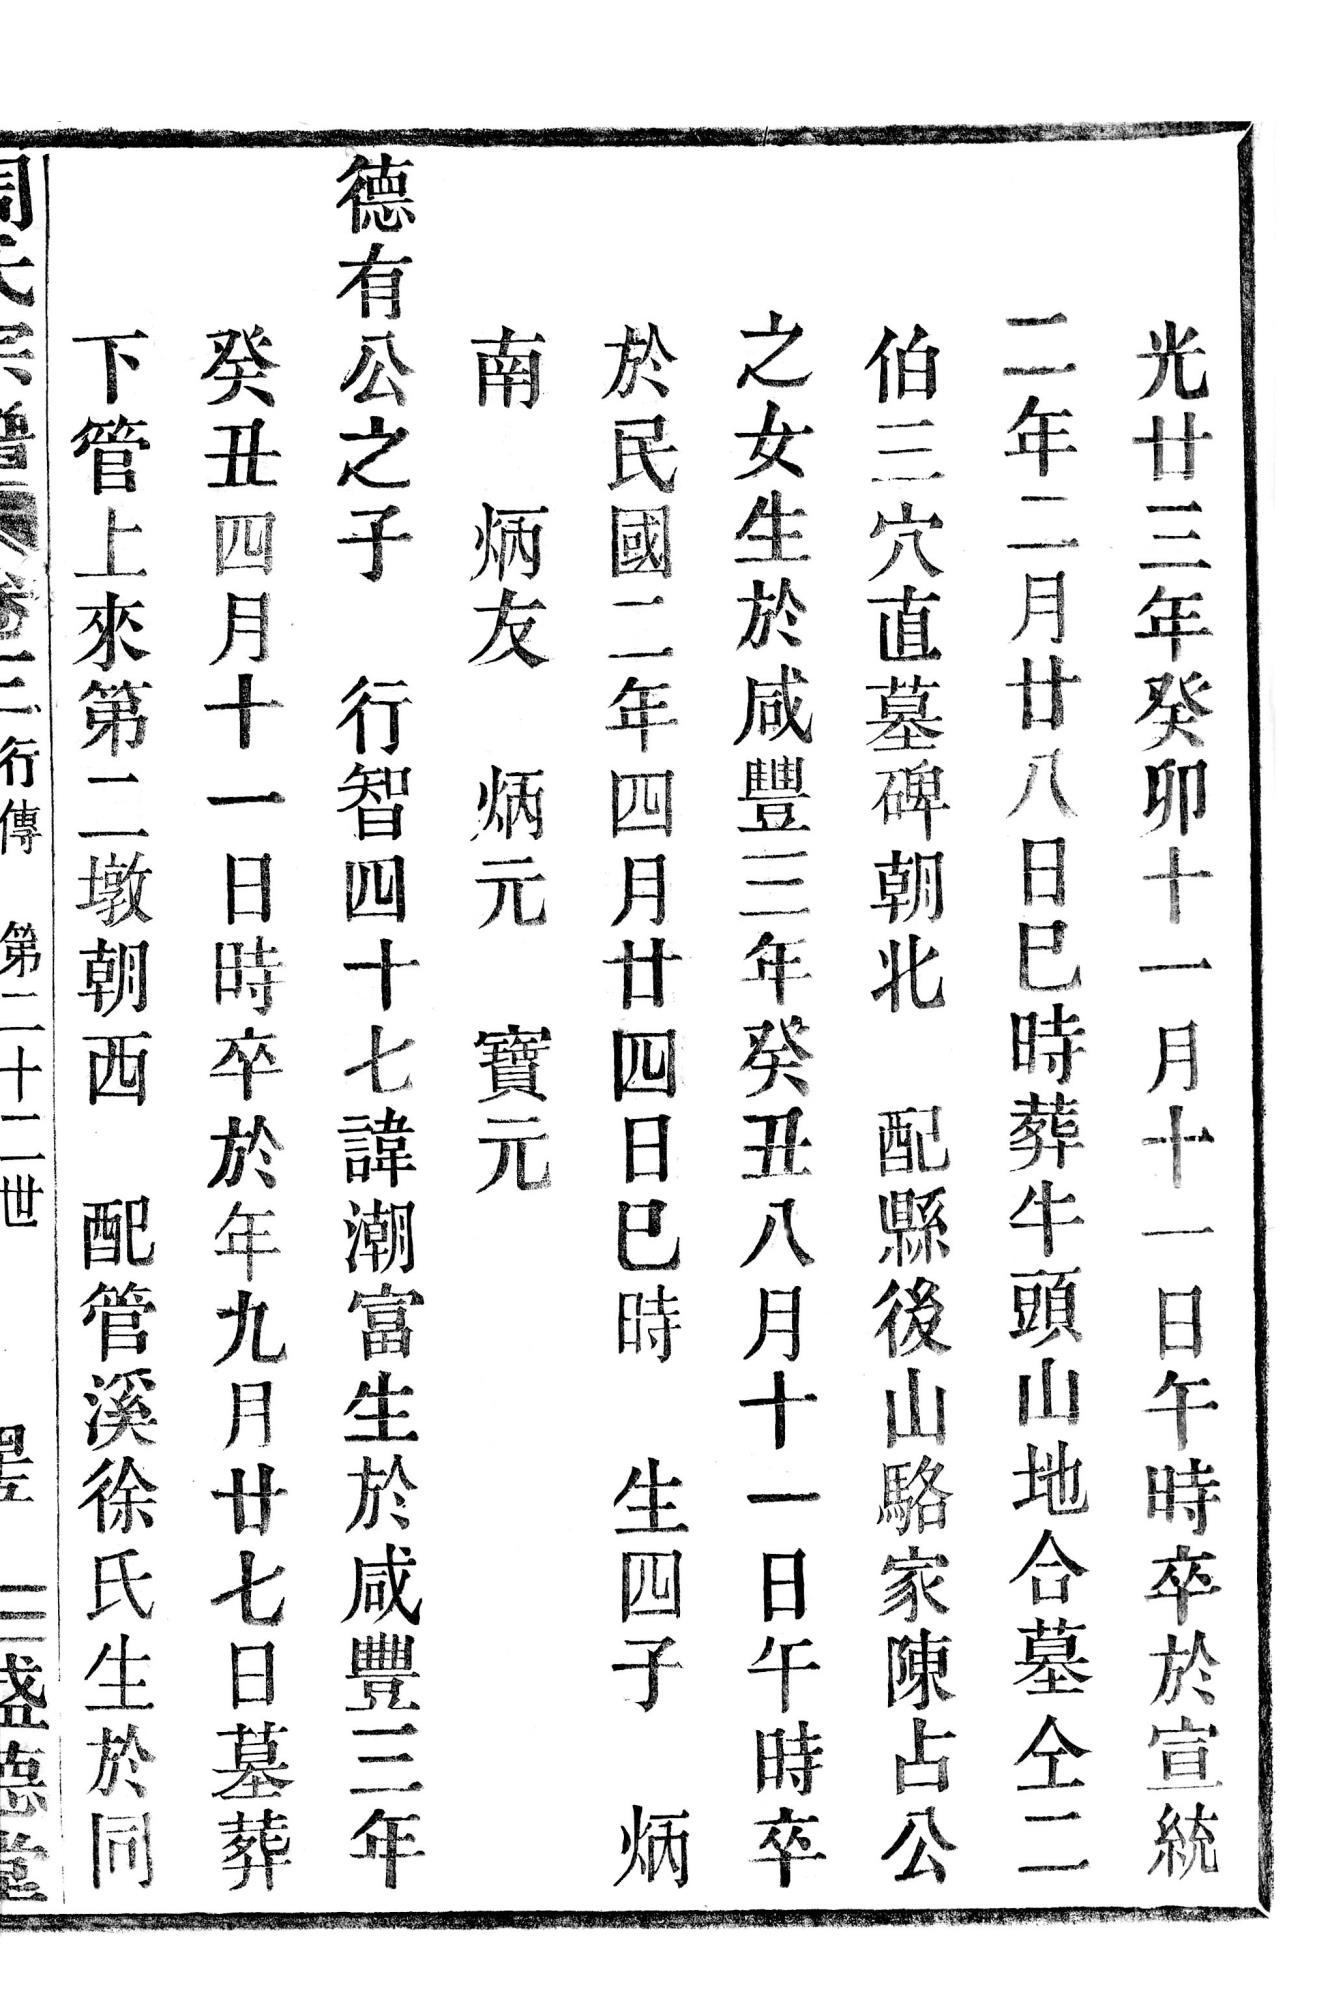 光廿三年癸卯十一月十一日午時卒於宣統
二年二月廿八日巳時葬牛頭山地合墓仝二
伯三穴直墓碑朝北　配縣後山駱家陳占公
之女生於咸豐三年癸丑八月十一日午時卒
於民國二年四月廿四日巳時　生四子　炳
南　炳友　炳元　寶元
德有公之子　行智四十七諱潮富生於咸豐三年
癸丑四月十一日時卒於年九月廿七日墓葬
下管上來第二墩朝西　配管溪徐氏生於同
周氏宗譜　卷二行傳　第二十二世　三盛德堂